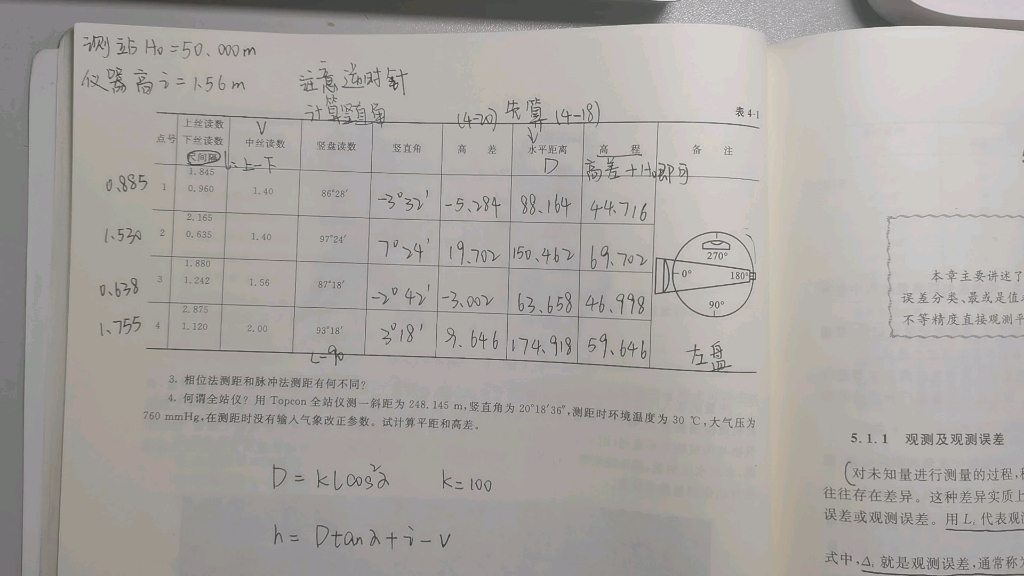 测站H₀=50.000m
仪器高i=1.56m
注意逆时针
计算竖直角
(4-20) 先算 (4-18)
表4-1
点号 上丝读数 下丝读数 尺间隔 V 中丝读数 竖盘读数 竖直角 高差 水平距离 高程 备注
l=上-下 D 高差+H₀即可
0.885 1 1.845 0.960 1.40 86°28′ -3°32′ -5.284 88.164 44.716
1.530 2 2.165 0.635 1.40 97°24′ 7°24′ 19.702 150.462 69.702
0.638 3 1.880 1.242 1.56 87°18′ -2°42′ -3.002 63.658 46.998
1.755 4 2.875 1.120 2.00 93°18′ 3°18′ 9.646 174.918 59.646
L-90
270°
0° 180°
90°
左盘
3. 相位法测距和脉冲法测距有何不同?
4. 何谓全站仪? 用 Topcon 全站仪测一斜距为 248.145 m,竖直角为 20°18′36″,测距时环境温度为 30 ℃,大气压为
760 mmHg,在测距时没有输入气象改正参数。试计算平距和高差。
D=klcos²α k=100
h=Dtanα+i-V
本章主要讲述了
误差分类、
不等精度直接观测平
5.1.1 观测及观测误差
(对未知量进行测量的过程,
往往存在差异。这种差异实质上
误差或观测误差。用 Lᵢ 代表观
式中,Δᵢ 就是观测误差,通常称为